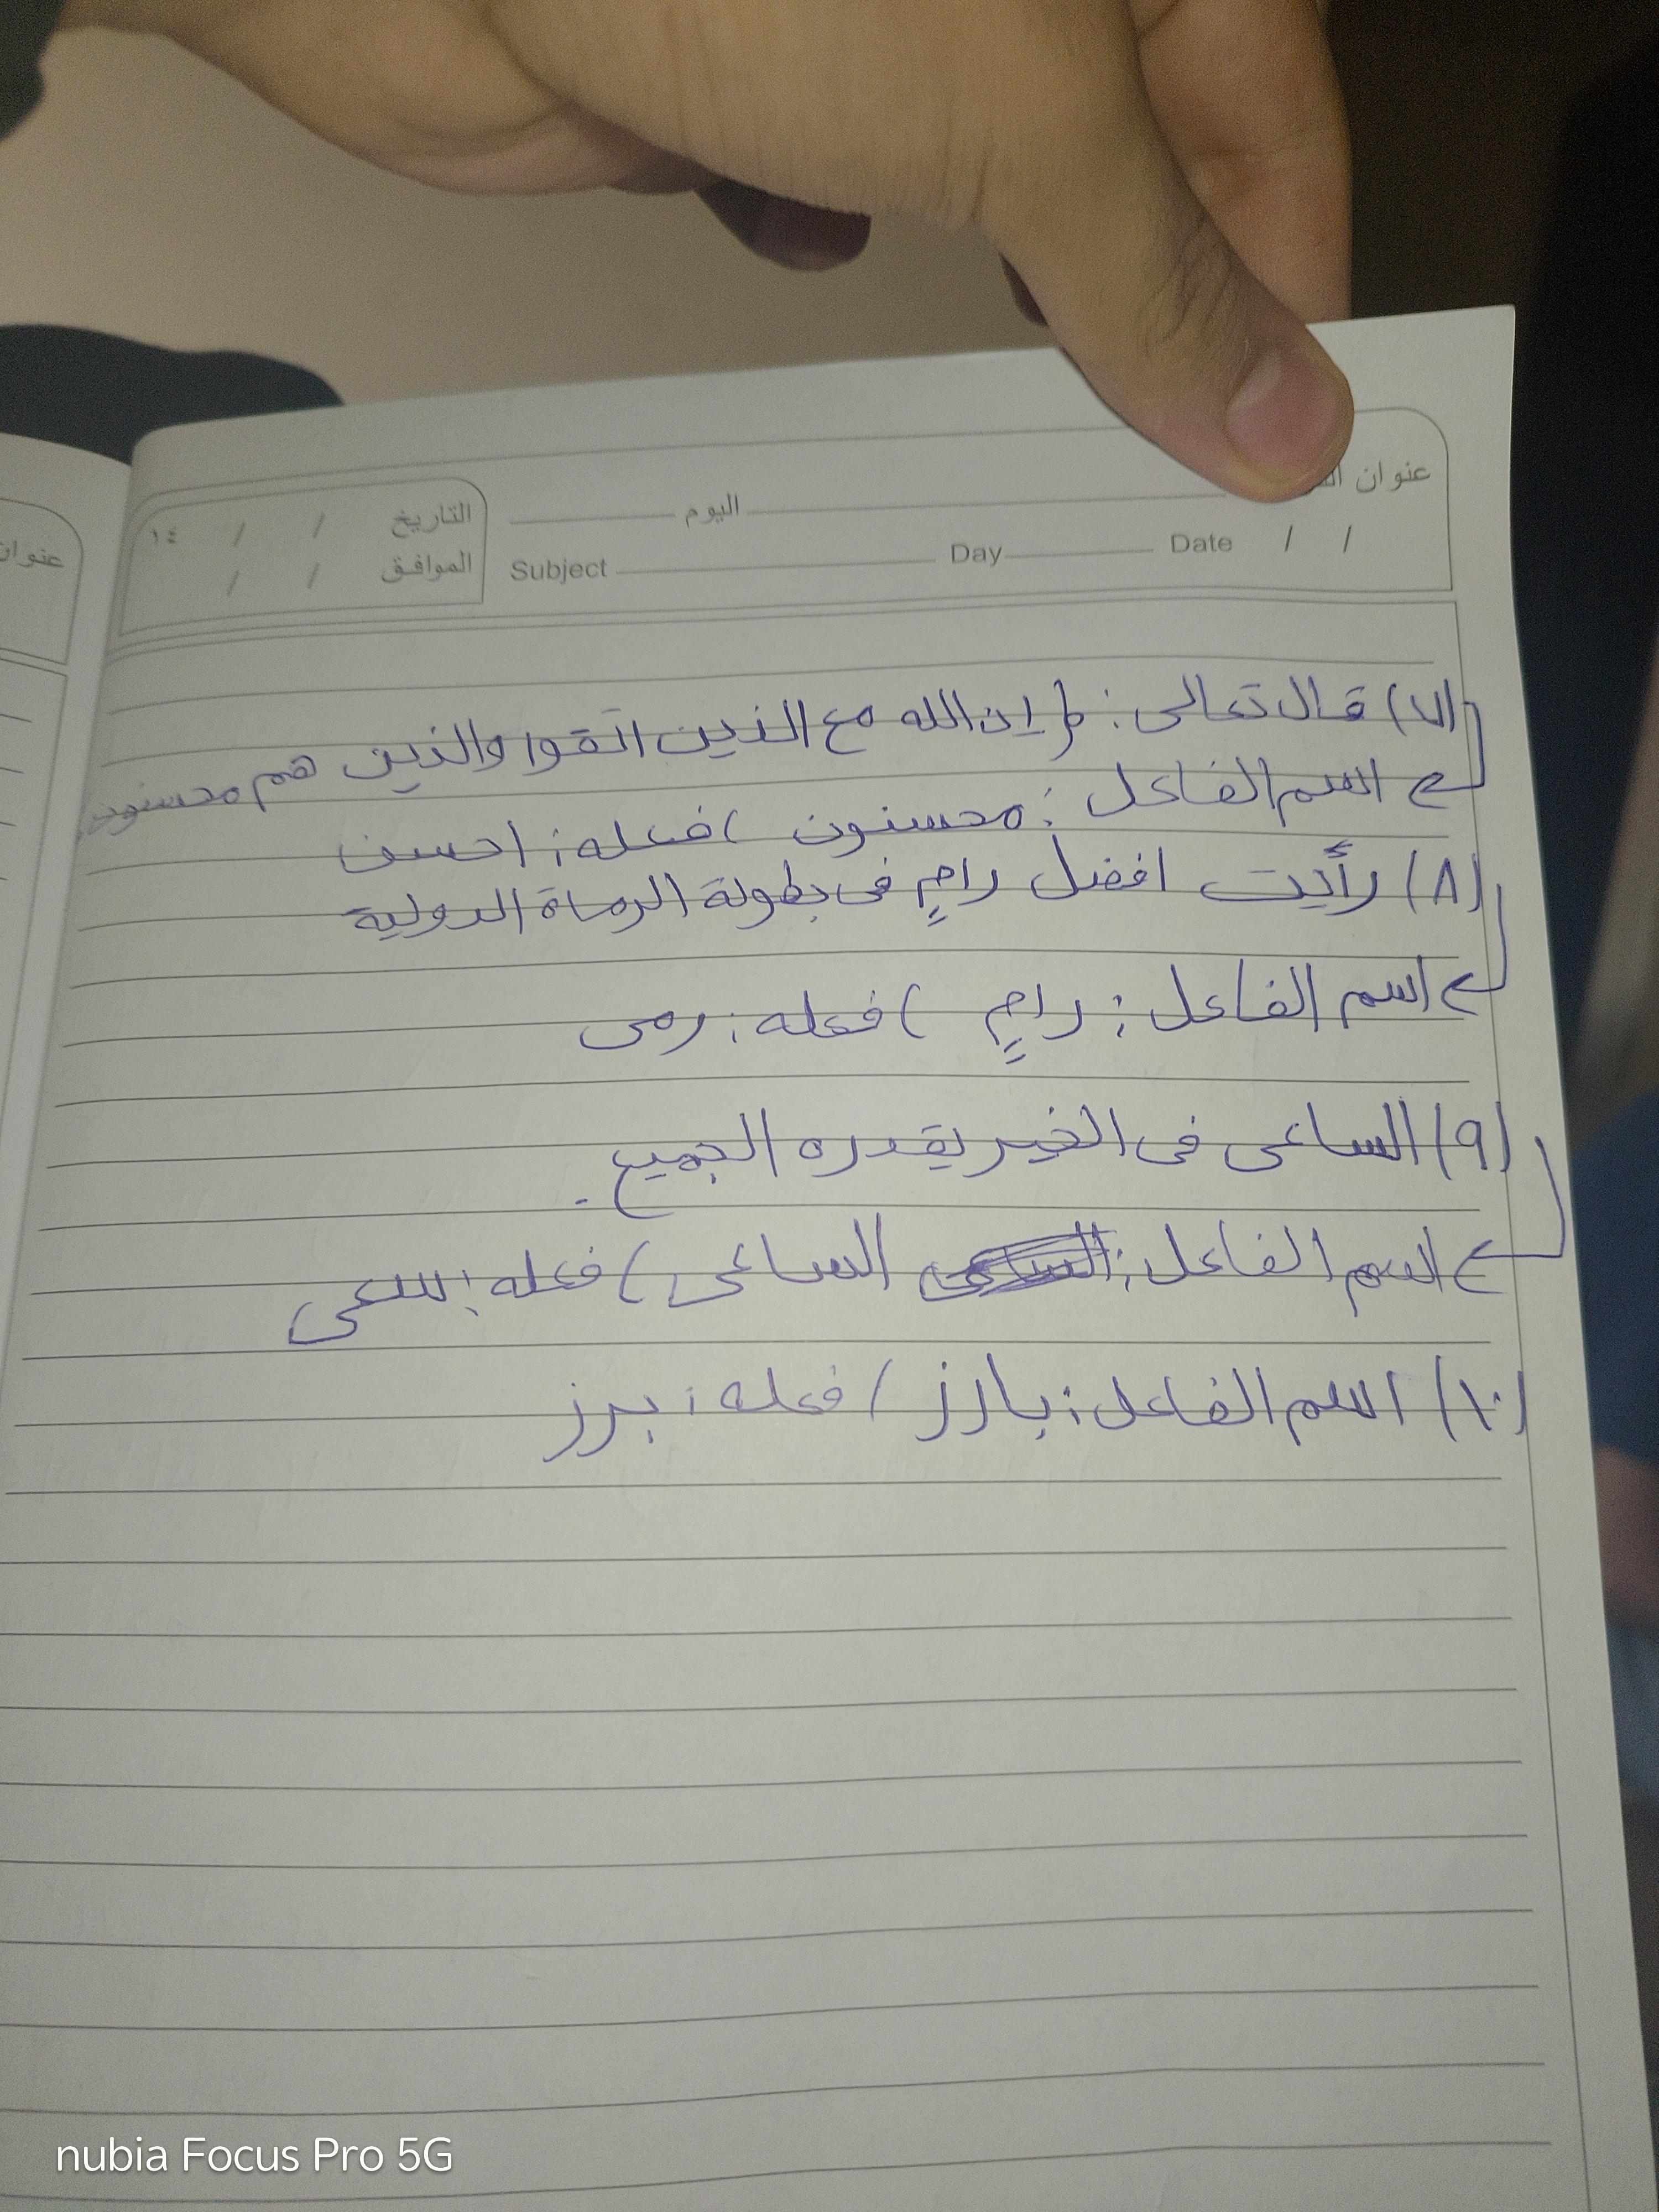 عنوان
عنوان
اليوم
التاريخ / / ١٤
Date / / Day Subject
الموافق / /
(٧) قال تعالى: { إن الله مع الذين اتقوا والذين هم محسنون
اسم الفاعل: محسنون ) فعله: احسن
(٨) رأيت افضل رامٍ فى بطولة الرماة الدولية
اسم الفاعل: رامٍ ) فعله: رمى
(٩) الساعى فى الخير يقدره الجميع.
اسم الفاعل: الساعى ) فعله: سعى
(١٠) اسم الفاعل: بارز ) فعله: برز
nubia Focus Pro 5G